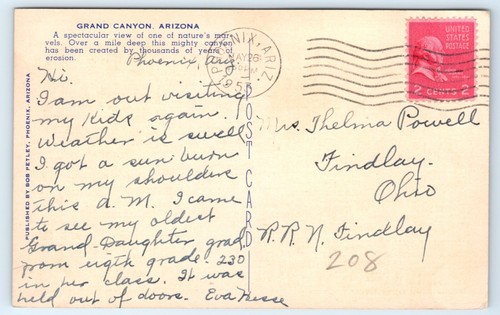 GRAND CANYON, ARIZONA
A spectacular view of one of nature's mar-
vels. Over a mile deep this mighty canyon
has been created by thousands of years of
erosion.
Phoenix, Ariz
Hi.
I am out visiting
my kids again.
Weather is swell
I got a sun burn
on my shoulders
this A.M. I came
to see my oldest
Grand Daughter grad.
from eigth grade. 230
in her class. It was
held out of doors. Eva Hesse
PUBLISHED BY BOB PETLEY, PHOENIX, ARIZONA
POST CARD
PHOENIX, ARIZ.
MAY 26
UNITED
STATES
POSTAGE
2 CENTS 2
Mrs. Thelma Powell
Findlay.
Ohio
R.R.N. Findlay
208